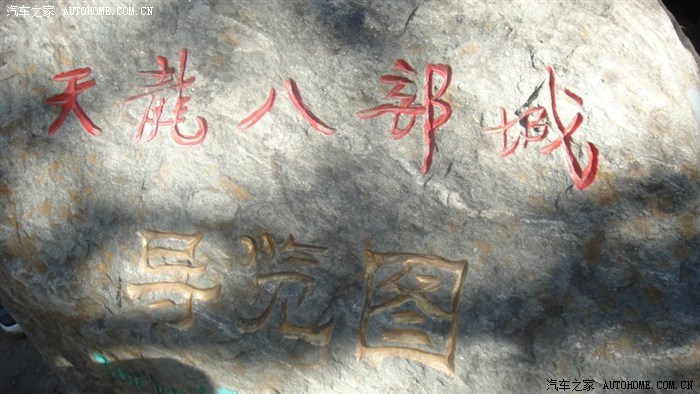 汽车之家 AUTOHOME.COM.CN
天龍八部城
导览图
汽车之家 AUTOHOME.COM.CN